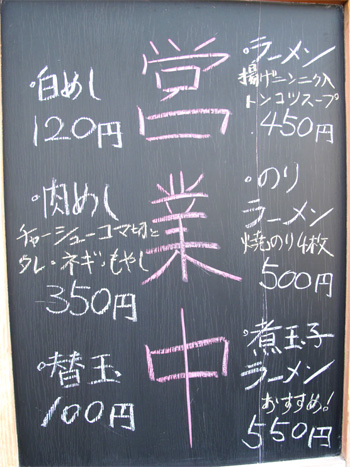 ・ラーメン
揚げニンニク入
トンコツスープ
450円
・のり
ラーメン
焼のり4枚
500円
・煮玉子
ラーメン
おすすめ!
550円
営業中
・白めし
120円
・肉めし
チャーシューコマ切と
タレ・ネギ・もやし
350円
・替玉
100円